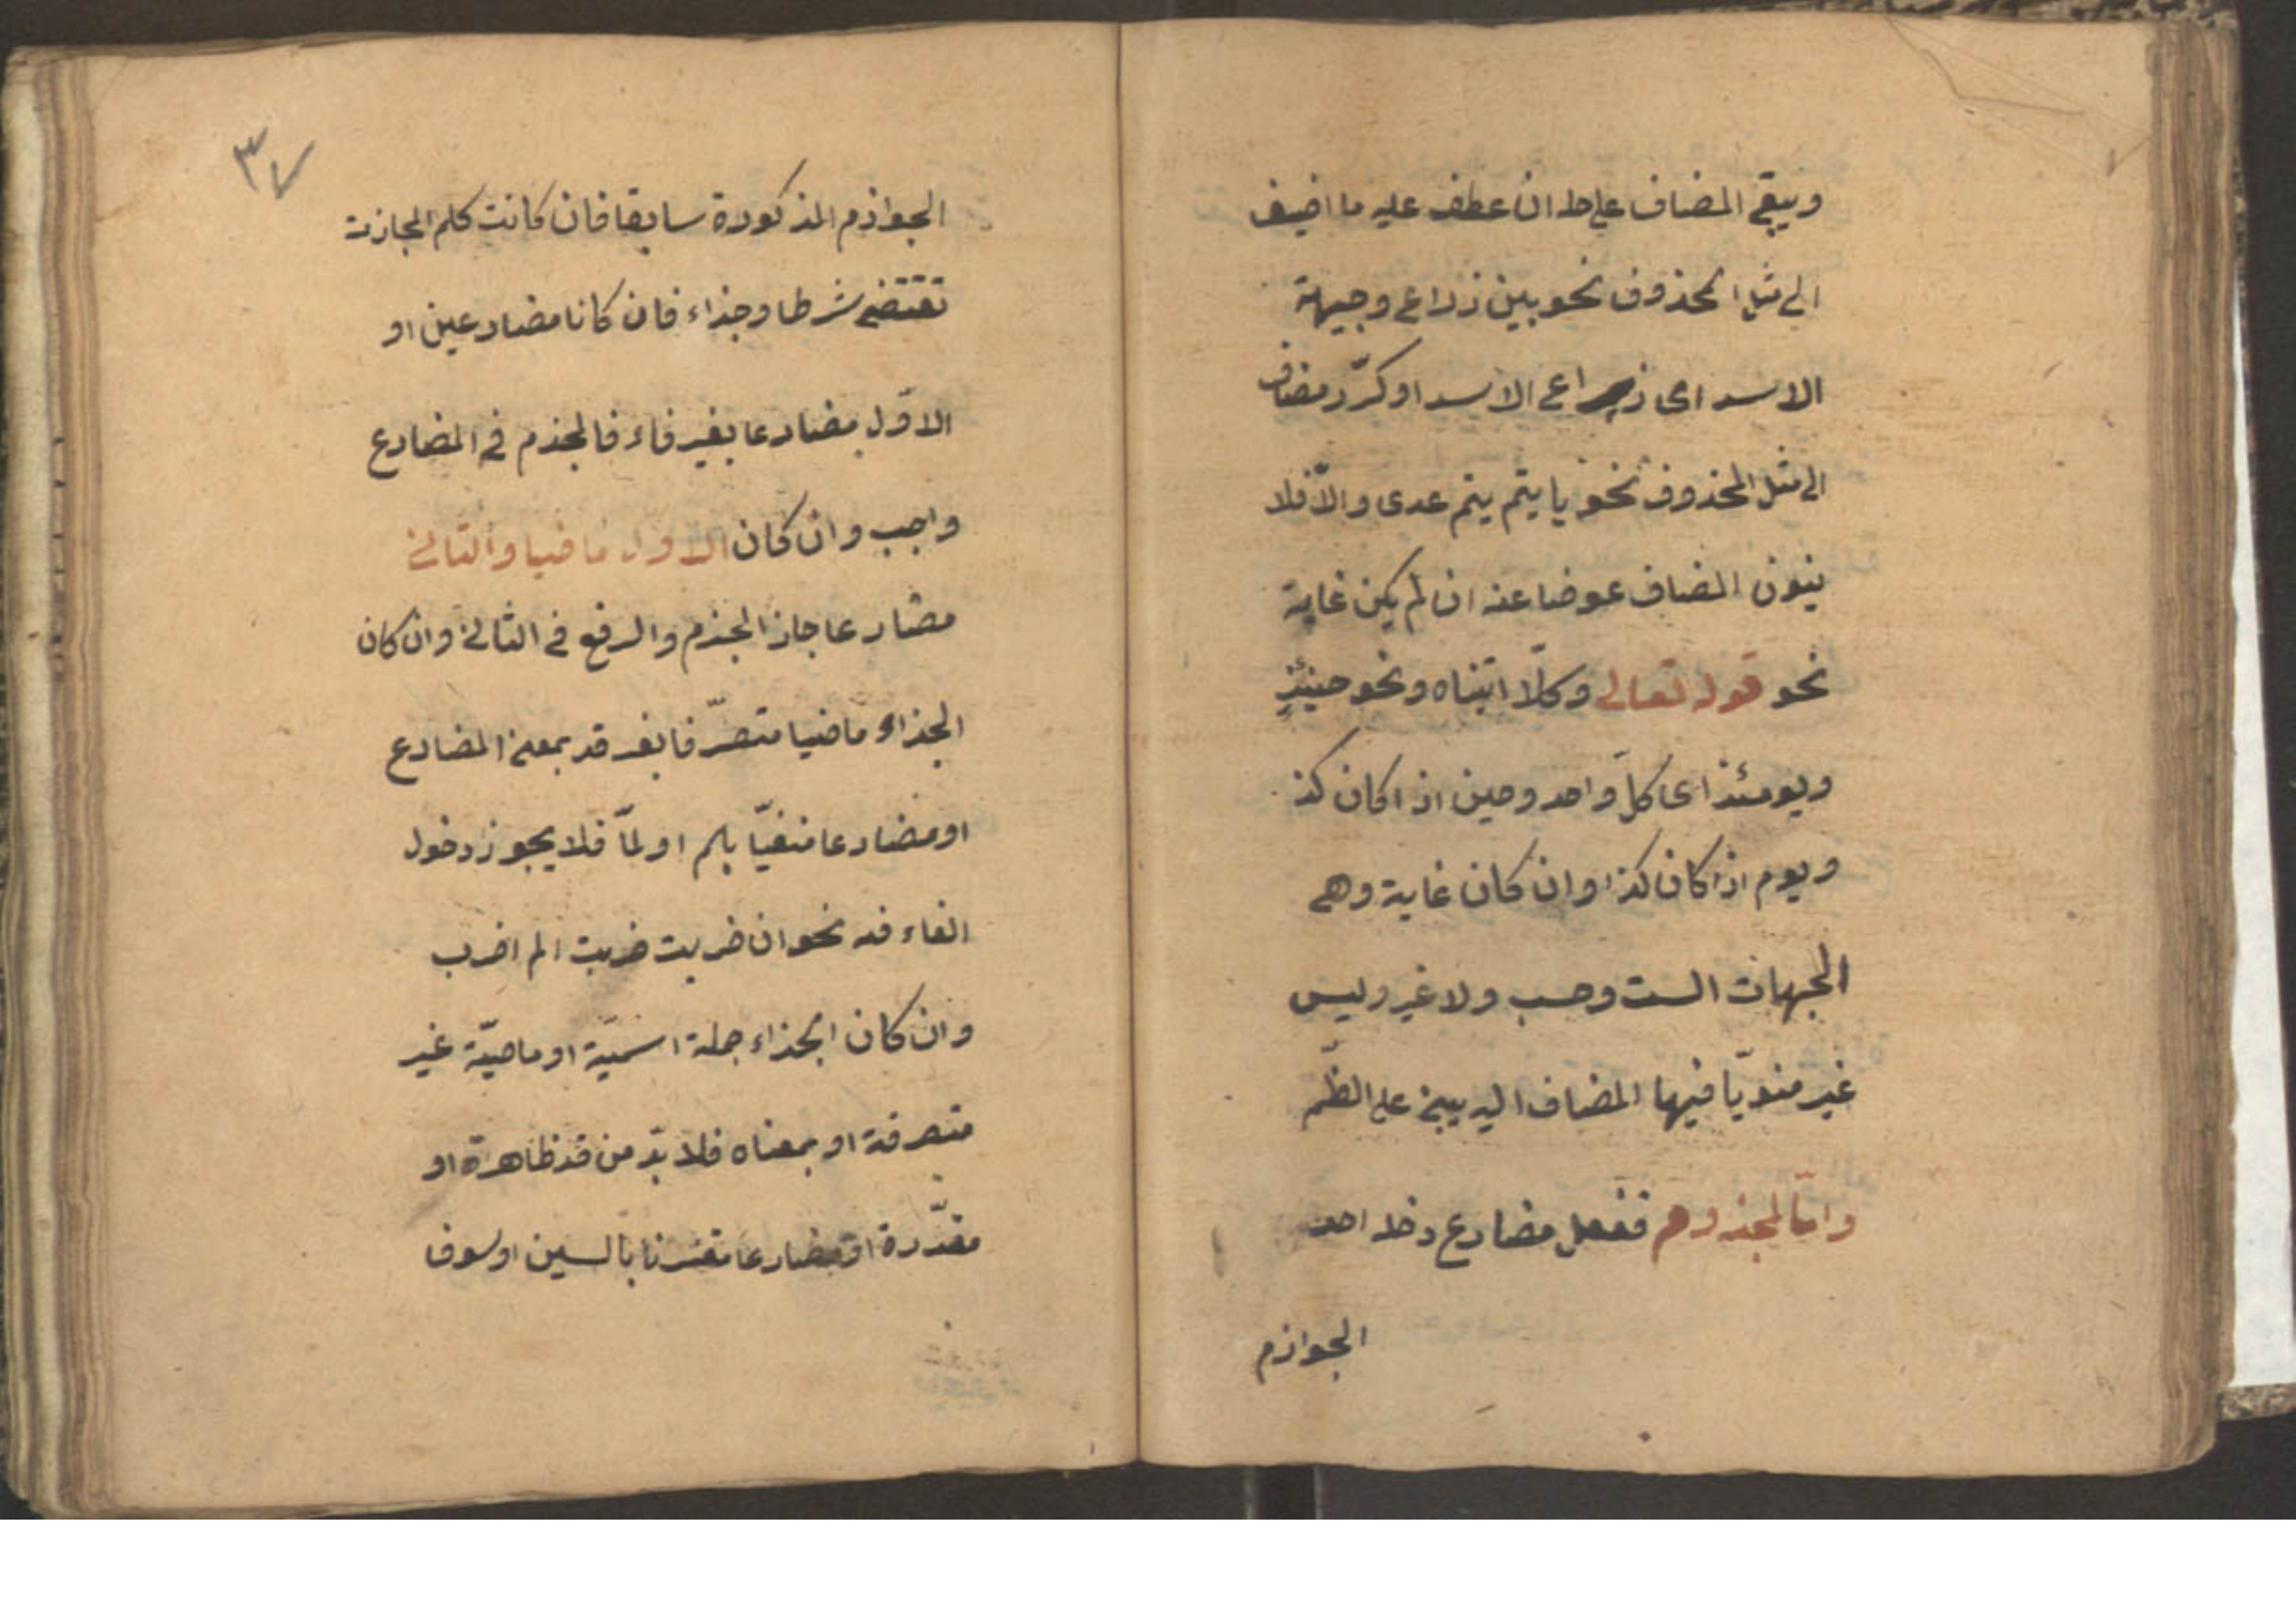 ويبقى المضاف على حاله ان عطف عليه ما اضيف
الى مثل المحذوف نحو بين ذراعى وجبهة
الاسد اى ذراعى الاسد او كرّر مضاف
الى مثل المحذوف نحو يا تيم تيم عدى والّا فلا
ينون المضاف عوضا عنه ان لم يكن غاية
نحو قوله تعالى وكلّا اتيناه ونحو حينئذٍ
ويومئذ اى كلّ واحد وحين اذ اكان كذ
ويوم اذا كان كذا وان كان غاية وهى
الجهات الست وحسب ولا غير وليس
غير منويّا فيها المضاف اليه يبنى على الضّم
وامّا المجزوم ففعل مضارع دخله احد
الجوازم
٣٧
الجوازم المذكورة سابقا فان كانت كلم المجازت
تقتضى شرطا وجزاء فان كانا مضارعين او
الاوّل مضارعا بغير فاء فالجزم فى المضارع
واجب وان كان الاول ماضيا والثانى
مضارعا جاز الجزم والرفع فى الثانى وان كان
الجزاء ماضيا متصرّفا بغير قد بمعنى المضارع
او مضارعا منفيّا بلم او لمّا فلا يجوز دخول
الفاء فيه نحو ان ضربت ضربت الم اضرب
وان كان الجزاء جملة اسميّة او ماضيّة غير
متصرفة او بمعناه فلا بدّ من قد ظاهرة او
مقدّرة او مضارعا مقترنا بالسين او سوف